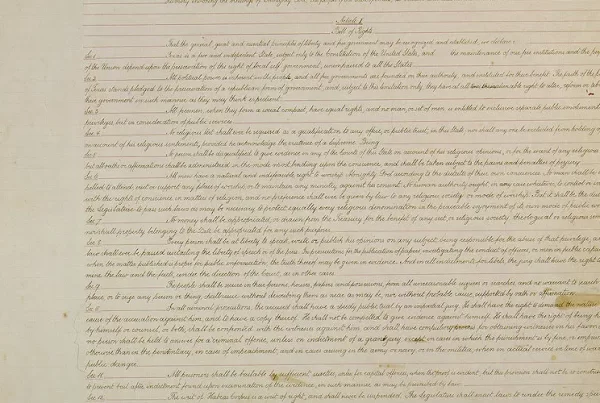 Article 1
Bill of Rights
That the general, great and essential principles of liberty and free government may be recognized and established, we declare:
Sec. 1. Texas is a free and independent State, subject only to the Constitution of the United States, and the maintenance of our free institutions and the perp
of the Union depend upon the preservation of the right of local self government, unimpaired to all the States.
Sec. 2. All political power is inherent in the people, and all free governments are founded on their authority, and instituted for their benefit. The faith of the p
of Texas stands pledged to the preservation of a republican form of government, and, subject to this limitation only, they have at all times the inalienable right to alter, reform or ab
their government in such manner as they may think expedient.
Sec. 3. All freemen, when they form a social compact, have equal rights, and no man, or set of men, is entitled to exclusive separate public emoluments
privileges, but in consideration of public services.
Sec. 4. No religious test shall ever be required as a qualification to any office, or public trust, in this State; nor shall any one be excluded from holding
account of his religious sentiments, provided he acknowledge the existence of a Supreme Being.
Sec. 5. No person shall be disqualified to give evidence in any of the Courts of this State on account of his religious opinions, or for the want of any religious
but all oaths or affirmations shall be administered in the mode most binding upon the conscience, and shall be taken subject to the pains and penalties of perjury.
Sec. 6. All men have a natural and indefeasible right to worship Almighty God according to the dictates of their own consciences. No man shall be
pelled to attend, erect or support any place of worship, or to maintain any ministry against his consent. No human authority ought, in any case whatever, to control or in
with the rights of conscience in matters of religion, and no preference shall ever be given by law to any religious society or mode of worship. But it shall be the du
the Legislature to pass such laws as may be necessary to protect equally every religious denomination in the peaceable enjoyment of its own mode of public wor
Sec. 7. No money shall be appropriated, or drawn from the Treasury for the benefit of any sect, or religious society, theological or religious sem
nor shall property belonging to the State be appropriated for any such purposes.
Sec. 8. Every person shall be at liberty to speak, write or publish his opinions on any subject, being responsible for the abuse of that privilege, an
law shall ever be passed curtailing the liberty of speech or of the press. In prosecutions for the publication of papers investigating the conduct of officers, or men in public capac
when the matter published is proper for public information, the truth thereof may be given in evidence. And in all indictments for libels the jury shall have the right to
mine the law and the facts, under the direction of the court, as in other cases.
Sec. 9. The people shall be secure in their persons, houses, papers and possessions, from all unreasonable seizures or searches, and no warrant to search
place, or to seize any person or thing, shall issue without describing them as near as may be, nor without probable cause, supported by oath or affirmation.
Sec. 10. In all criminal prosecutions, the accused shall have a speedy public trial by an impartial jury. He shall have the right to demand the nature
cause of the accusation against him, and to have a copy thereof. He shall not be compelled to give evidence against himself. He shall have the right of being h
by himself or counsel, or both; shall be confronted with the witnesses against him and shall have compulsory process for obtaining witnesses in his favor,
no person shall be held to answer for a criminal offense, unless on indictment of a grand jury, except in cases in which the punishment is by fine, or impriso
otherwise than in the penitentiary, in cases of impeachment, and in cases arising in the army or navy, or in the militia, when in actual service in time of war
public danger.
Sec. 11. All prisoners shall be bailable by sufficient sureties, unless for capital offenses, when the proof is evident; but this provision shall not be so construed
to prevent bail after indictment found upon examination of the evidence, in such manner as may be prescribed by law.
Sec. 12. The writ of Habeas Corpus is a writ of right, and shall never be suspended. The Legislature shall enact laws to render the remedy spee